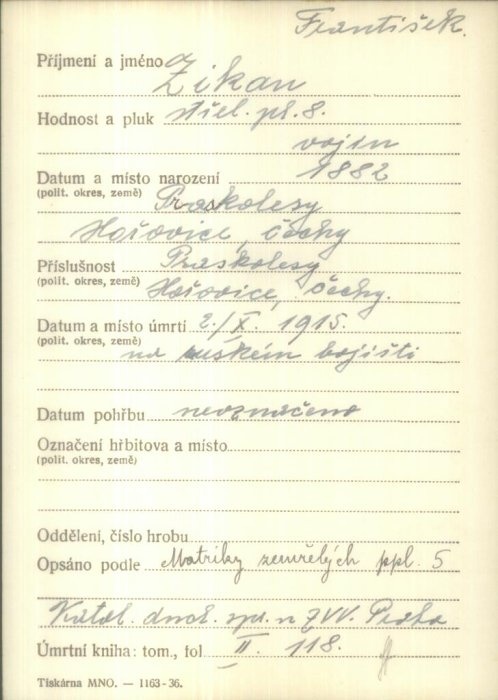 František.
Příjmení a jméno Zikan
Hodnost a pluk střel. pl. 8.
vojín
Datum a místo narození 1882
(polit. okres, země) Praskolesy
Hořovice, Čechy
Příslušnost Praskolesy
(polit. okres, země) Hořovice, Čechy.
Datum a místo úmrtí 2./X. 1915.
(polit. okres, země) na ruském bojišti
Datum pohřbu neoznačeno
Označení hřbitova a místo
(polit. okres, země)
Oddělení, číslo hrobu
Opsáno podle Matriky zemřelých ppl. 5
Katol. duch. spr. n ZVV. Praha
Úmrtní kniha: tom., fol II. 118.
Tiskárna MNO. — 1163-36.